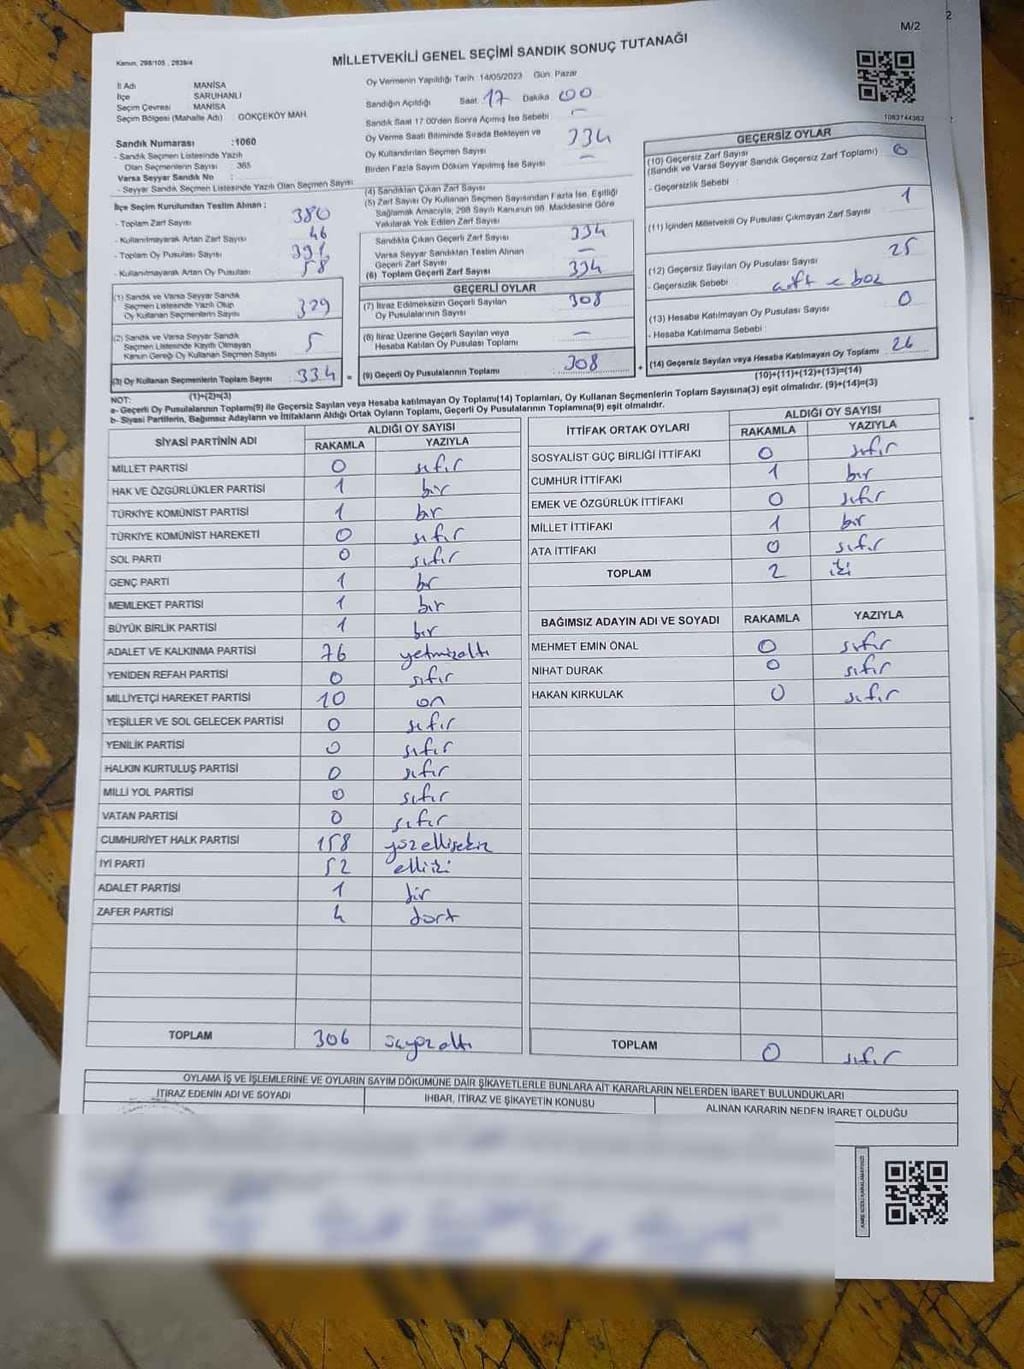 2
M/2
Kanun, 298/105 , 2839/4
MİLLETVEKİLİ GENEL SEÇİMİ SANDIK SONUÇ TUTANAĞI
İl Adı MANİSA
İlçe SARUHANLI
Seçim Çevresi MANİSA
Seçim Bölgesi (Mahalle Adı) : GÖKÇEKÖY MAH.
Sandık Numarası :1060
- Sandık Seçmen Listesinde Yazılı
Olan Seçmenlerin Sayısı : 365
Varsa Seyyar Sandık No :
- Seyyar Sandık Seçmen Listesinde Yazılı Olan Seçmen Sayısı
Oy Vermenin Yapıldığı Tarih : 14/05/2023 Gün: Pazar
Sandığın Açıldığı Saat 17 Dakika 00
Sandık Saat 17:00'den Sonra Açılmış İse Sebebi –
Oy Verme Saati Bitiminde Sırada Bekleyen ve
Oy Kullandırılan Seçmen Sayısı 334
Birden Fazla Sayım Döküm Yapılmış İse Sayısı –
1083744362
İlçe Seçim Kurulundan Teslim Alınan :
- Toplam Zarf Sayısı 380
- Kullanılmayarak Artan Zarf Sayısı 46
- Toplam Oy Pusulası Sayısı
- Kullanılmayarak Artan Oy Pusulası 58
(1) Sandık ve Varsa Seyyar Sandık
Seçmen Listesinde Yazılı Olup
Oy Kullanan Seçmenlerin Sayısı 329
(2) Sandık ve Varsa Seyyar Sandık
Seçmen Listesinde Kayıtlı Olmayan
Kanun Gereği Oy Kullanan Seçmen Sayısı 5
(3) Oy Kullanan Seçmenlerin Toplam Sayısı 334 =
(1)+(2)=(3)
(4) Sandıktan Çıkan Zarf Sayısı
(5) Zarf Sayısı Oy Kullanan Seçmen Sayısından Fazla ise, Eşitliği
Sağlamak Amacıyla, 298 Sayılı Kanunun 98. Maddesine Göre
Yakılarak Yok Edilen Zarf Sayısı
Sandıkta Çıkan Geçerli Zarf Sayısı 334
Varsa Seyyar Sandıktan Teslim Alınan
Geçerli Zarf Sayısı –
(6) Toplam Geçerli Zarf Sayısı 334
GEÇERLİ OYLAR
(7) İtiraz Edilmeksizin Geçerli Sayılan
Oy Pusulalarının Sayısı 308
(8) İtiraz Üzerine Geçerli Sayılan veya
Hesaba Katılan Oy Pusulası Toplamı –
(9) Geçerli Oy Pusulalarının Toplamı 308 +
GEÇERSİZ OYLAR
(10) Geçersiz Zarf Sayısı 0
(Sandık ve Varsa Seyyar Sandık Geçersiz Zarf Toplamı)
- Geçersizlik Sebebi :
(11) İçinden Milletvekili Oy Pusulası Çıkmayan Zarf Sayısı 1
(12) Geçersiz Sayılan Oy Pusulası Sayısı 25
- Geçersizlik Sebebi
(13) Hesaba Katılmayan Oy Pusulası Sayısı 0
- Hesaba Katılmama Sebebi :
(14) Geçersiz Sayılan veya Hesaba Katılmayan Oy Toplamı 26
(10)+(11)+(12)+(13)=(14)
NOT:
a- Geçerli Oy Pusulalarının Toplamı(9) ile Geçersiz Sayılan veya Hesaba katılmayan Oy Toplamı(14) Toplamları, Oy Kullanan Seçmenlerin Toplam Sayısına(3) eşit olmalıdır. (9)+(14)=(3)
b- Siyasi Partilerin, Bağımsız Adayların ve İttifakların Aldığı Ortak Oyların Toplamı, Geçerli Oy Pusulalarının Toplamına(9) eşit olmalıdır.
SİYASİ PARTİNİN ADI ALDIĞI OY SAYISI
RAKAMLA YAZIYLA
MİLLET PARTİSİ 0 sıfır
HAK VE ÖZGÜRLÜKLER PARTİSİ 1 bir
TÜRKİYE KOMÜNİST PARTİSİ 1 bir
TÜRKİYE KOMÜNİST HAREKETİ 0 sıfır
SOL PARTİ 0 sıfır
GENÇ PARTİ 1 br
MEMLEKET PARTİSİ 1 bir
BÜYÜK BİRLİK PARTİSİ 1 bir
ADALET VE KALKINMA PARTİSİ 76 yetmişaltı
YENİDEN REFAH PARTİSİ 0 sıfır
MİLLİYETÇİ HAREKET PARTİSİ 10 on
YEŞİLLER VE SOL GELECEK PARTİSİ 0 sıfır
YENİLİK PARTİSİ 0 sıfır
HALKIN KURTULUŞ PARTİSİ 0 sıfır
MİLLİ YOL PARTİSİ 0 sıfır
VATAN PARTİSİ 0 sıfır
CUMHURİYET HALK PARTİSİ 158 yüzellisekiz
İYİ PARTİ 52 elliiki
ADALET PARTİSİ 1 bir
ZAFER PARTİSİ 4 dört
TOPLAM 306 üçyüzaltı
İTTİFAK ORTAK OYLARI ALDIĞI OY SAYISI
RAKAMLA YAZIYLA
SOSYALİST GÜÇ BİRLİĞİ İTTİFAKI 0 sıfır
CUMHUR İTTİFAKI 1 bir
EMEK VE ÖZGÜRLÜK İTTİFAKI 0 sıfır
MİLLET İTTİFAKI 1 bir
ATA İTTİFAKI 0 sıfır
TOPLAM 2 iki
BAĞIMSIZ ADAYIN ADI VE SOYADI RAKAMLA YAZIYLA
MEHMET EMİN ÖNAL 0 sıfır
NİHAT DURAK 0 sıfır
HAKAN KIRKULAK 0 sıfır
TOPLAM 0 sıfır
OYLAMA İŞ VE İŞLEMLERİNE VE OYLARIN SAYIM DÖKÜMÜNE DAİR ŞİKAYETLERLE BUNLARA AİT KARARLARIN NELERDEN İBARET BULUNDUKLARI
İTİRAZ EDENİN ADI VE SOYADI İHBAR, İTİRAZ VE ŞİKAYETİN KONUSU ALINAN KARARIN NEDEN İBARET OLDUĞU